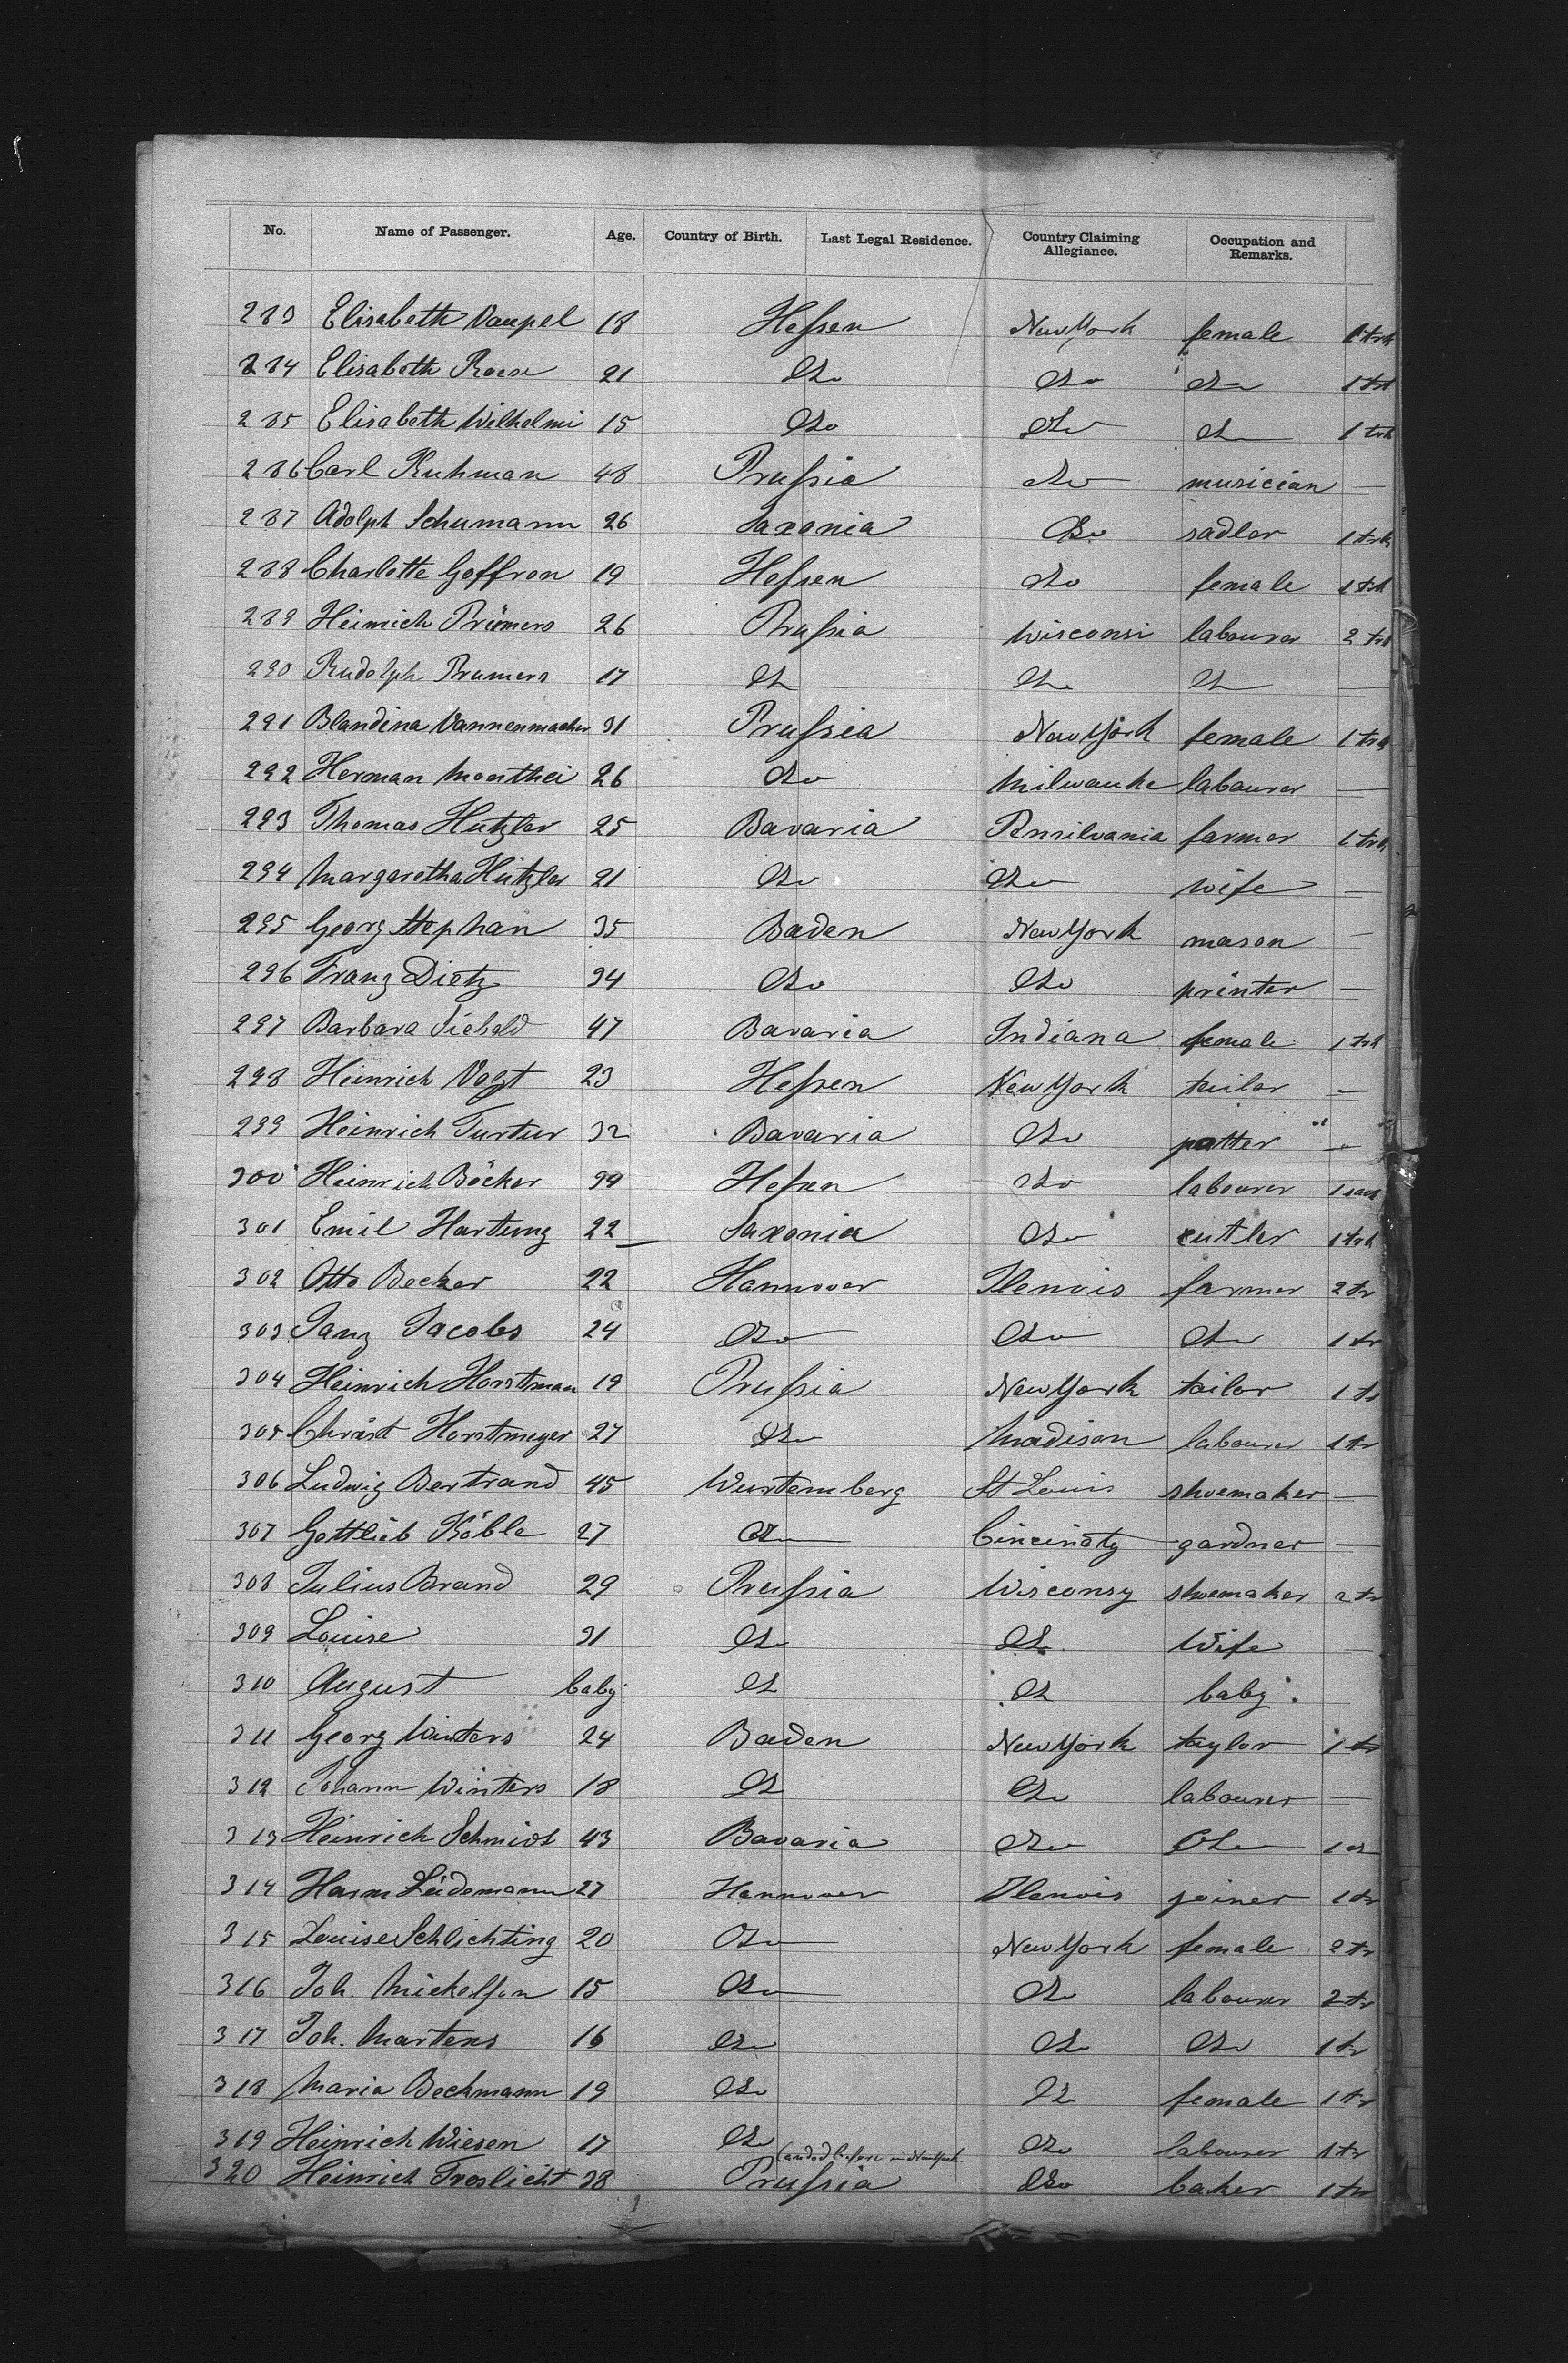 No. Name of Passenger. Age. Country of Birth. Last Legal Residence. Country Claiming Allegiance. Occupation and Remarks.
283 Elisabeth Vaupel 18 Hessen New York female 1 trk
284 Elisabeth Roese 21 Do Do Do 1 trk
285 Elisabeth Wilhelmi 15 Do Do Do 1 trk
286 Carl Kuhman 48 Prussia Do musician —
287 Adolph Schumann 26 Saxonia Do sadler 1 trk
288 Charlotte Goffron 19 Hessen Do female 1 trk
289 Heinrich Prümers 26 Prussia Wisconsi labourer 2 trk
290 Rudolph Prumers 17 Do Do Do —
291 Blandina Vannenmacher 31 Prussia New York female 1 trk
292 Herman 26 Do Milwauke labourer —
293 Thomas Hutzler 25 Bavaria Pensilvania farmer 1 trk
294 Margaretha Hützler 21 Do Do wife —
295 Georg Stephan 35 Baden New York mason —
296 Franz Dietz 34 Do Do printer —
297 Barbara Siebold 47 Bavaria Indiana female 1 trk
298 Heinrich Vogt 23 Hessen New York tailor —
299 Heinrich Turtur 32 Bavaria Do potter —
300 Heinrich Böcker 39 Hessen Do labourer 1 sack
301 Emil Hartung 22 Saxonia Do cutler 1 trk
302 Otto Becker 22 Hannover Ilenois farmer 2 tr
303 Janz Jacobs 24 Do Do Do 1 tr
304 Heinrich Horstman 19 Prussia New York tailor 1 tr
305 Christ Horstmeyer 27 Do Madison labourer 1 tr
306 Ludwig Bertrand 45 Wurtemberg St Louis shoemaker —
307 Gottlieb Köble 27 Do Cincinaty gardner —
308 Julius Brand 29 Prussia Wisconsy shoemaker 2 tr
309 Louise 31 Do Do Wife —
310 August baby Do Do baby
311 Georg Winters 24 Baden New York taylor 1 tr
312 Johann Winters 18 Do Do labourer —
313 Heinrich Schmidt 43 Bavaria Do Do 1
314 Harm Lüdemann 27 Hannover Ilenois joiner 1 tr
315 Louise Schlichting 20 Do New York female 2 tr
316 Joh. Mickelson 15 Do Do labourer 2 tr
317 Joh. Martens 16 Do Do Do 1 tr
318 Maria Beckmann 19 Do Do female 1 tr
319 Heinrich Wiesen 17 Do Do labourer 1 tr
(landed before in New York
320 Heinrich Froslicht 38 Prussia Do baker 1 tr